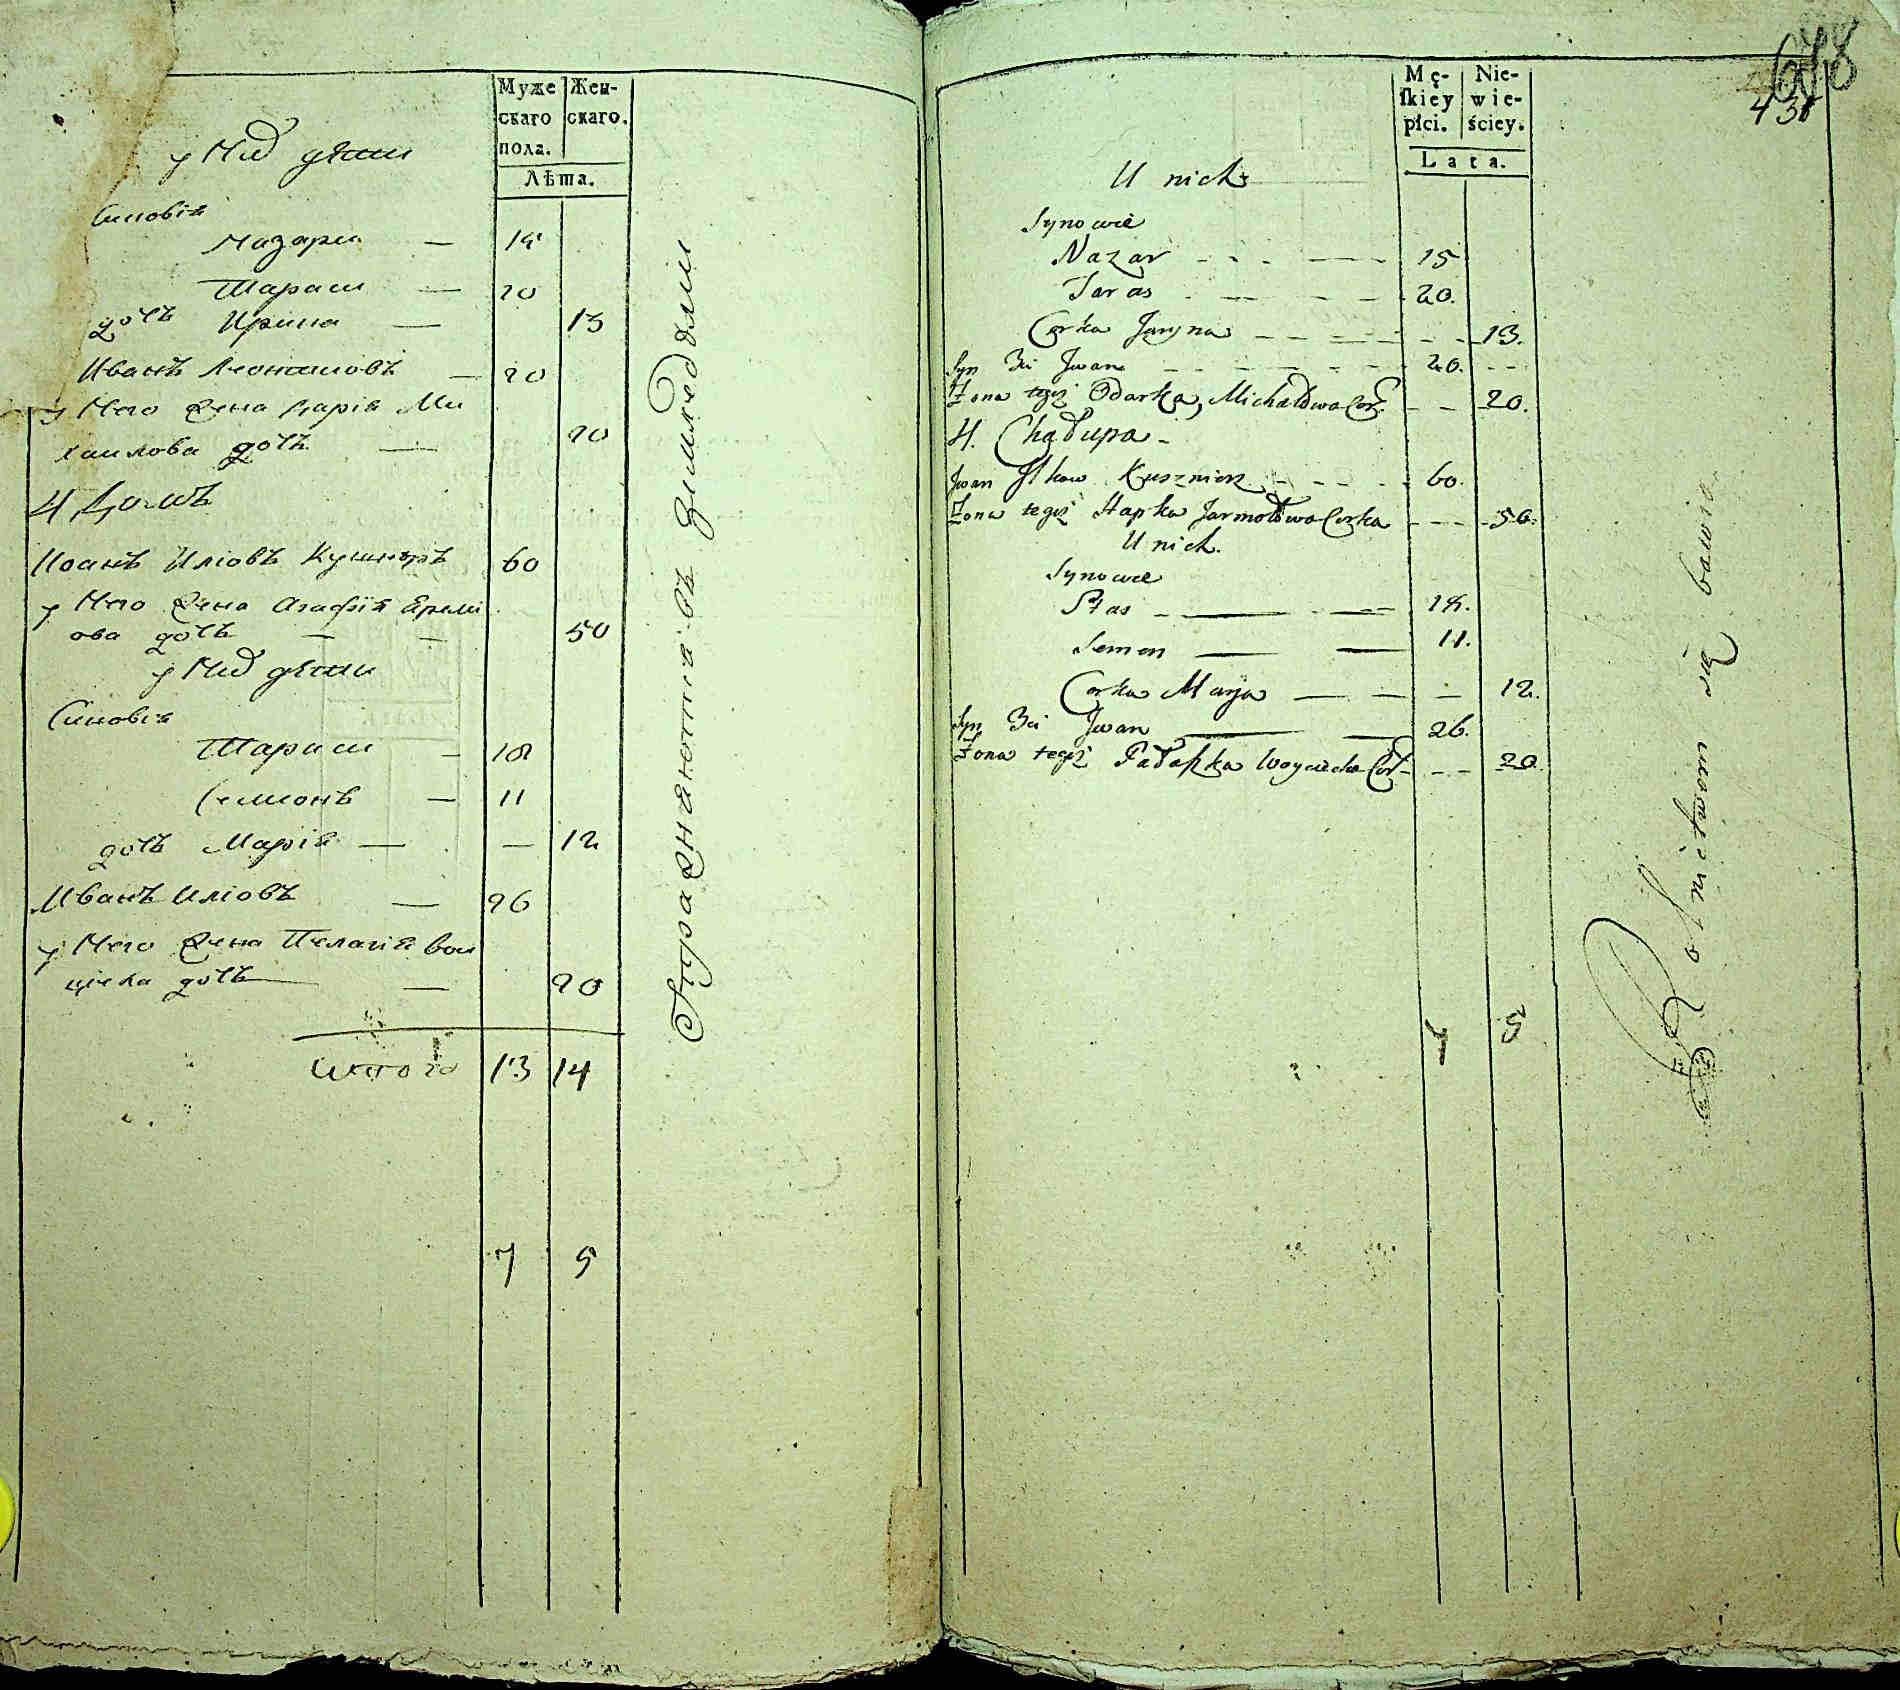 Муже
скаго
пола.
Жен-
скаго.
Лѣта.
у Них дѣти
Синовія
Назари — 15
Тараси — 20
дочь Ирина — 13
Иванъ Леонтиовъ — 20
у Него жена Дарія Ми
хаилова дочь — 20
4 Домъ
Иоанъ Иліовъ Кушнѣръ 60
у Него жена Агафія Ярели
ова дочь — — 50
у Них дѣти
Синовія
Тараси — 18
Семионъ — 11
дочь Марія — — 12
Иванъ Иліовъ — 26
у Него жена Пелагія Вои
цѣха дочь — 20
Итого 13 14
7 5
Упражняются въ Земледѣли
678
436
Mę-
ſkiey
płci.
Nie-
wie-
ściey.
Lata.
U nich
Synowie
Nazar 15
Taras 20.
Corka Jaryna 13.
Syn Iwan 20.
Żona tegoż Odarka, Michałowa Cor. 20.
4. Chałupa
Jwan Jlkow Kusznierz 60.
Żona tegoż Hapka Jarmołowa Corka 50.
U nich.
Synowie
Stas 18.
Semen 11.
Corka Marja 12.
Syn Jwan 26.
Żona tegoż Pałaszka Woyciecha Cor 20.
7 5
Rolnictwem się bawią